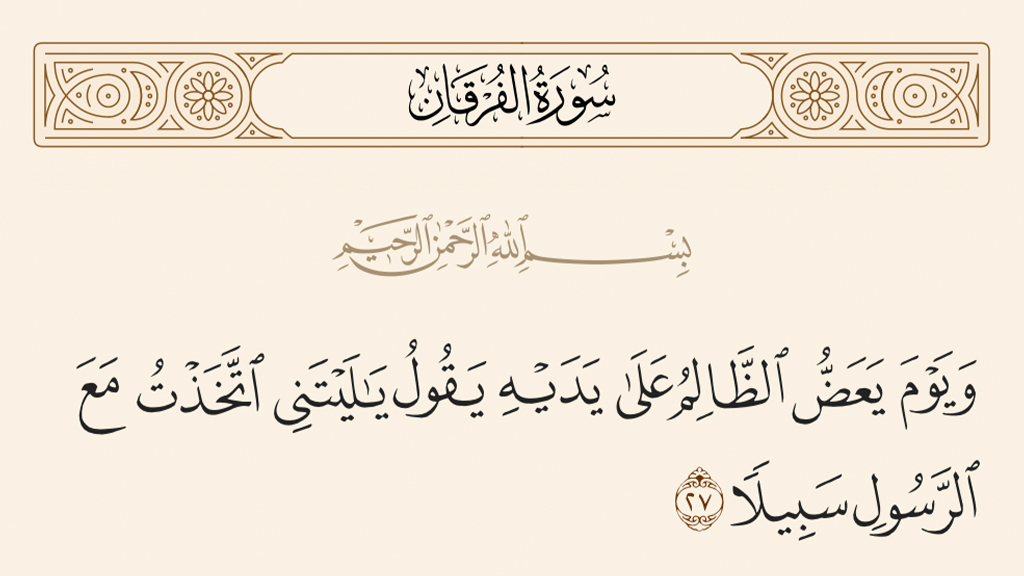 سُورَةُ الفُرْقَانِ
بِسْمِ ٱللَّهِ ٱلرَّحْمَٰنِ ٱلرَّحِيمِ
وَيَوْمَ يَعَضُّ ٱلظَّالِمُ عَلَىٰ يَدَيْهِ يَقُولُ يَـٰلَيْتَنِى ٱتَّخَذْتُ مَعَ
ٱلرَّسُولِ سَبِيلًا ٢٧